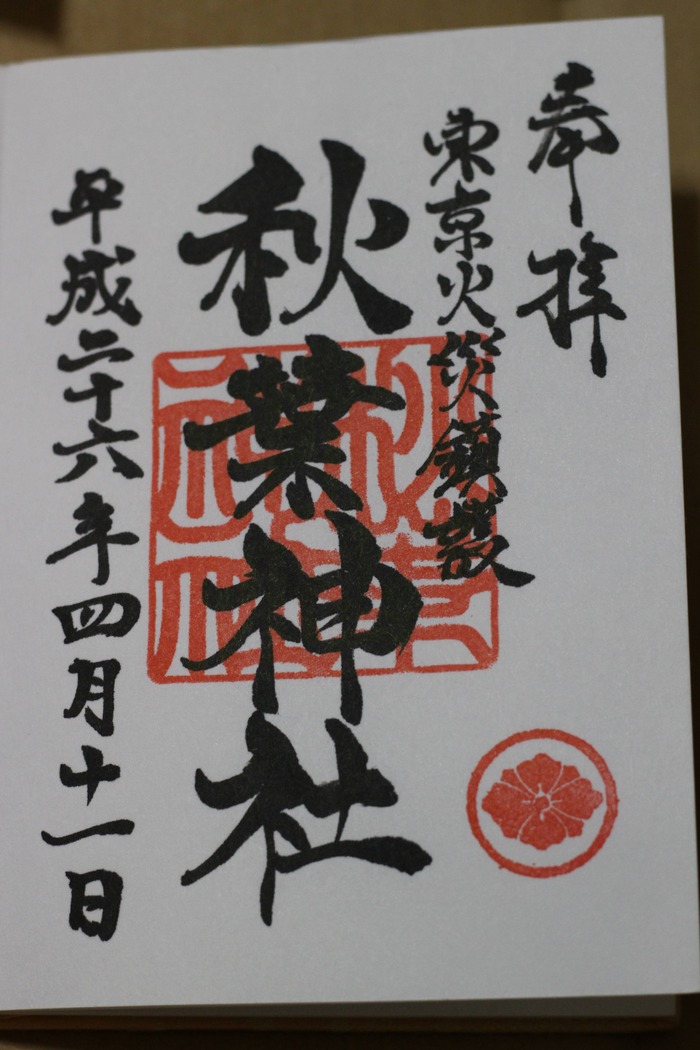 奉拝
東京火災鎮護
秋葉神社
平成二十六年四月十一日